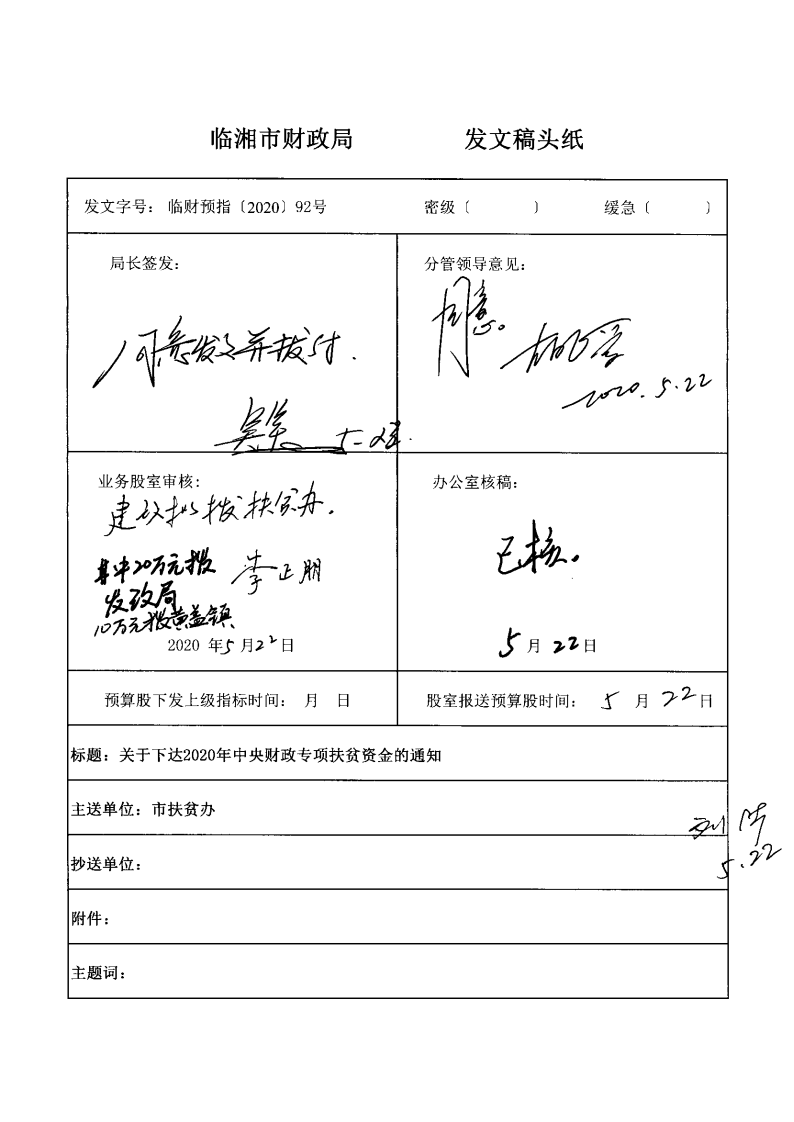 临湘市财政局 发文稿头纸
发文字号： 临财预指〔2020〕92号 密级〔 〕 缓急〔 〕
局长签发：
同意发文并拨付.
分管领导意见：
同意。
2020.5.22
业务股室审核：
建议拟拨扶贫办.
其中20万元拨
发改局
10万元拨黄盖镇
李正朋
2020 年5月22日
办公室核稿：
已核。
5月22日
预算股下发上级指标时间： 月 日
股室报送预算股时间： 5 月 22日
标题：关于下达2020年中央财政专项扶贫资金的通知
主送单位：市扶贫办
5.22
抄送单位：
附件：
主题词：